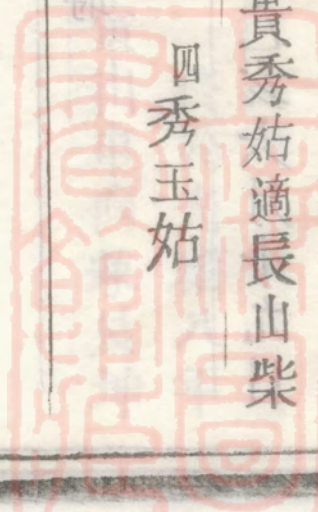 貴秀姑適長山柴
四秀玉姑